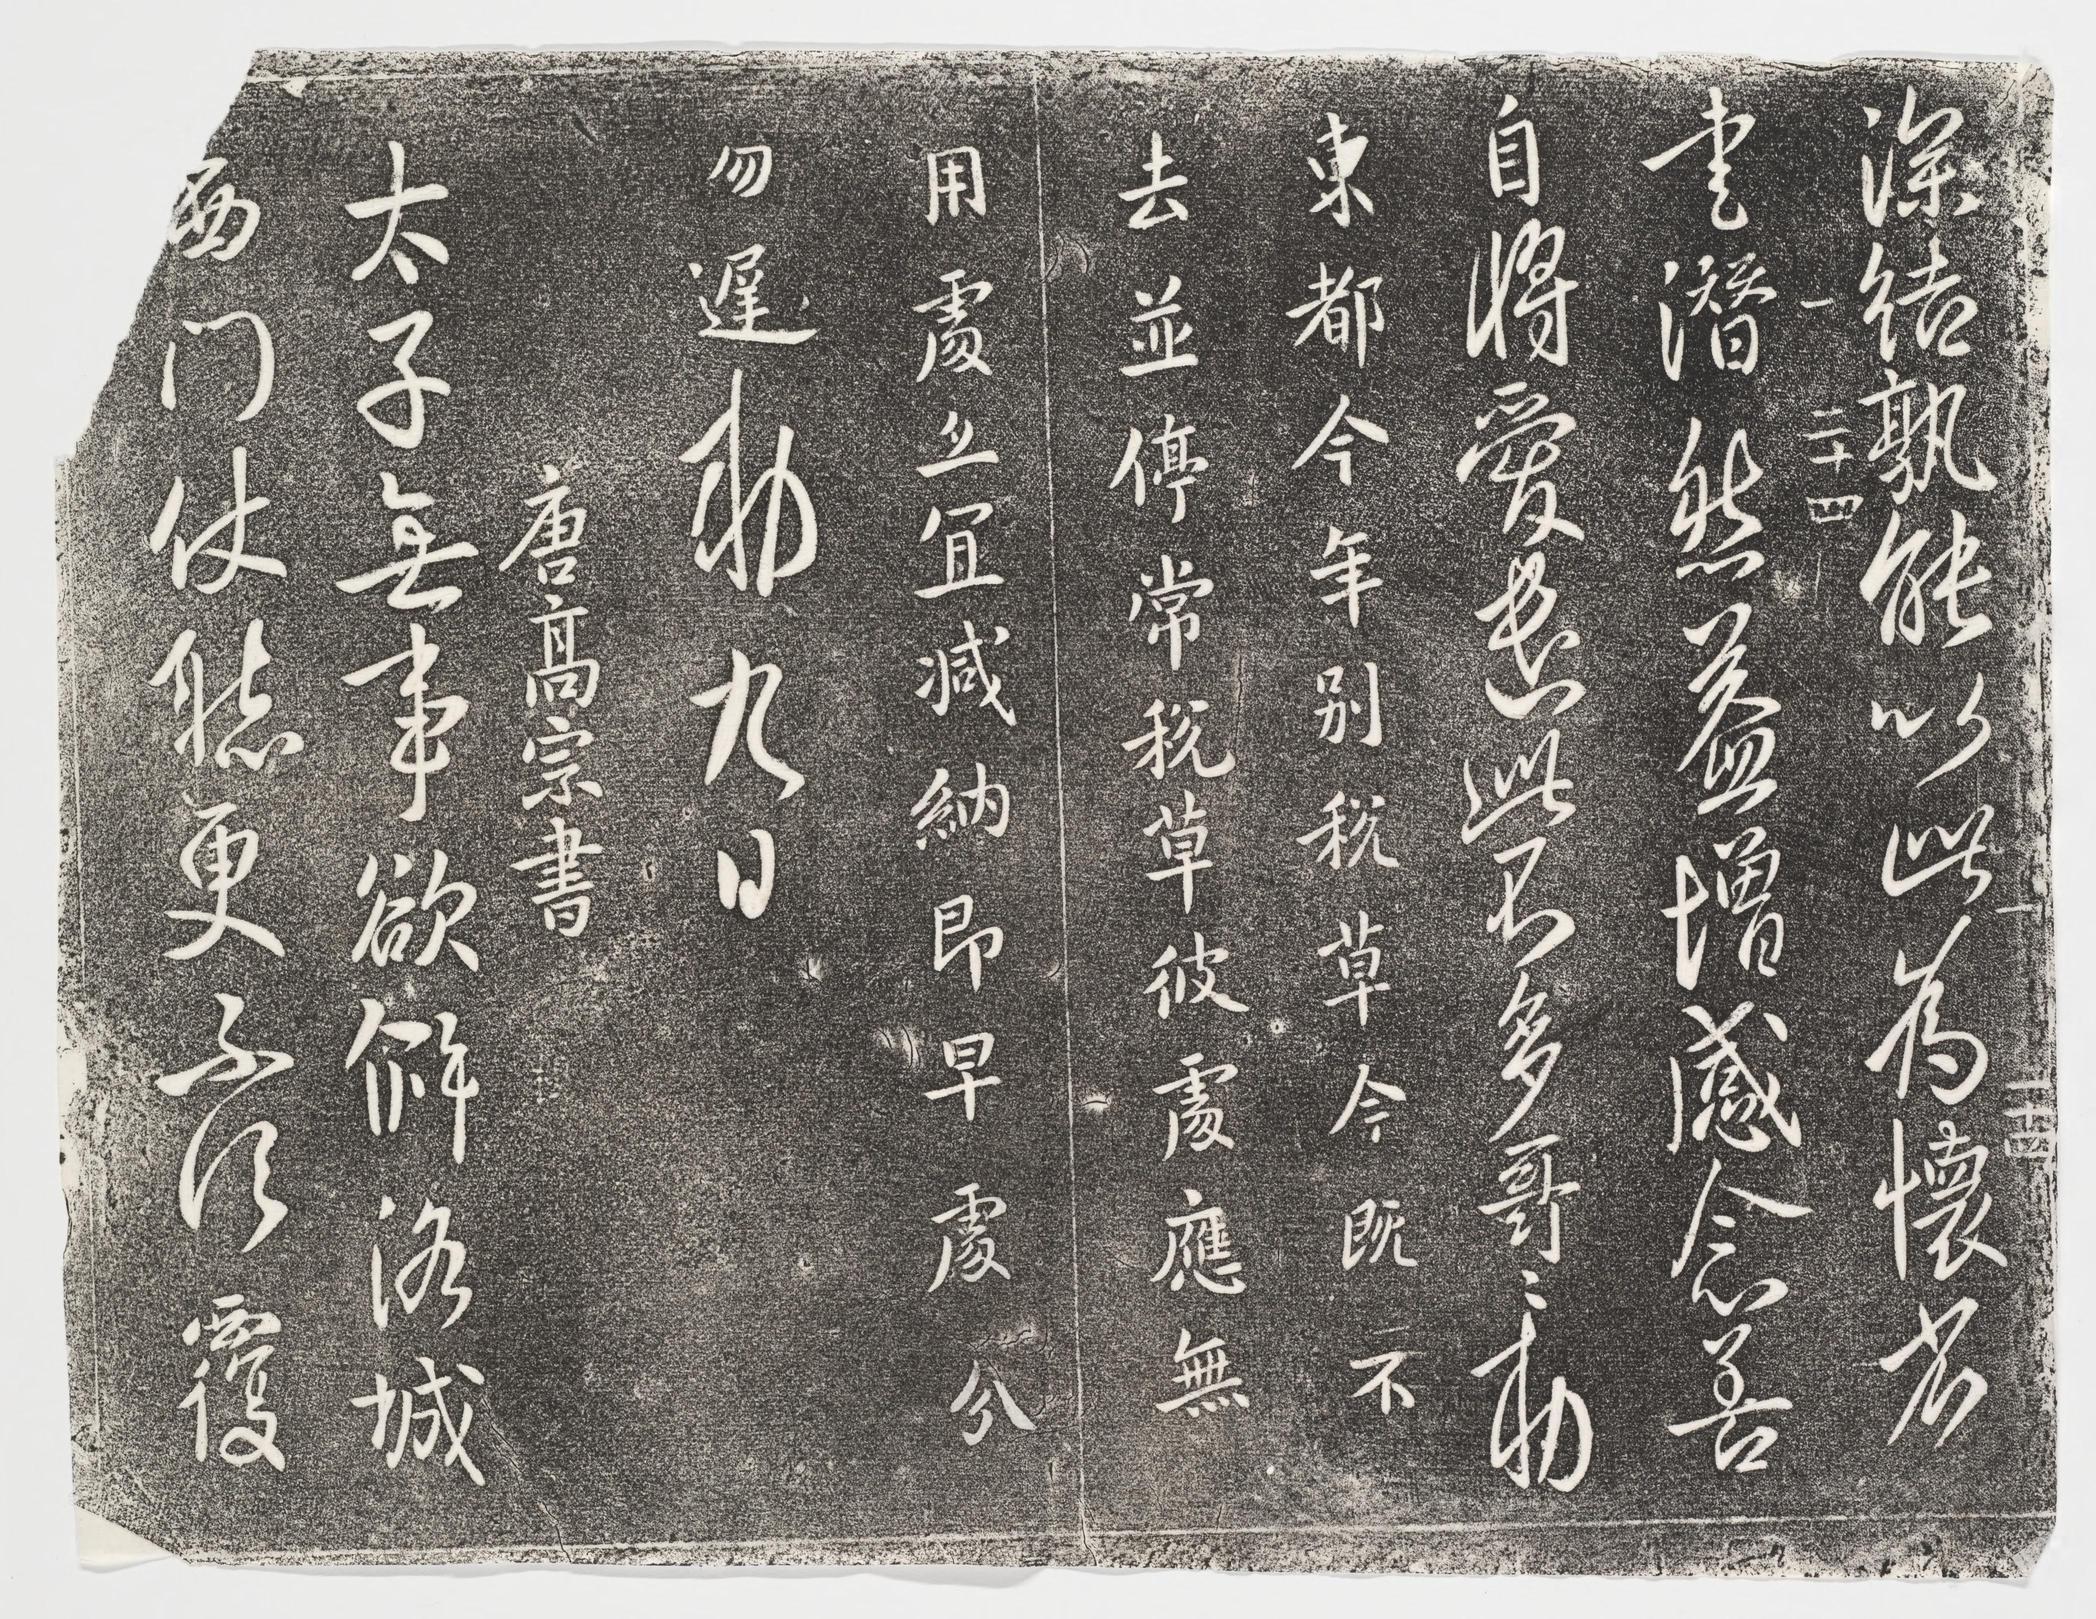 深結孰能以此為懷省
一 二十四
書潛然益增感念善
自將愛遣此不多哥〻勑
東都今年別稅草今既不
去並停常稅草彼處應無
用處亦宜減納即早處分
勿遲勑九日
唐高宗書
太子無事欲解洛城
西門仗聽更不須覆